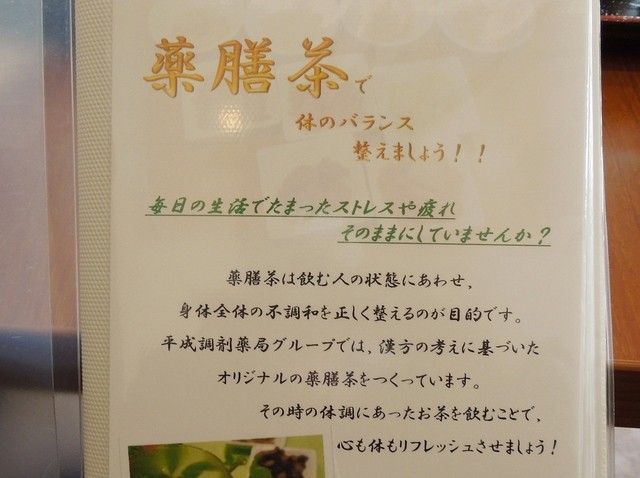 薬膳茶で
体のバランス
整えましょう！！
毎日の生活でたまったストレスや疲れ
そのままにしていませんか？
薬膳茶は飲む人の状態にあわせ,
身体全体の不調和を正しく整えるのが目的です。
平成調剤薬局グループでは,漢方の考えに基づいた
オリジナルの薬膳茶をつくっています。
その時の体調にあったお茶を飲むことで,
心も体もリフレッシュさせましょう！